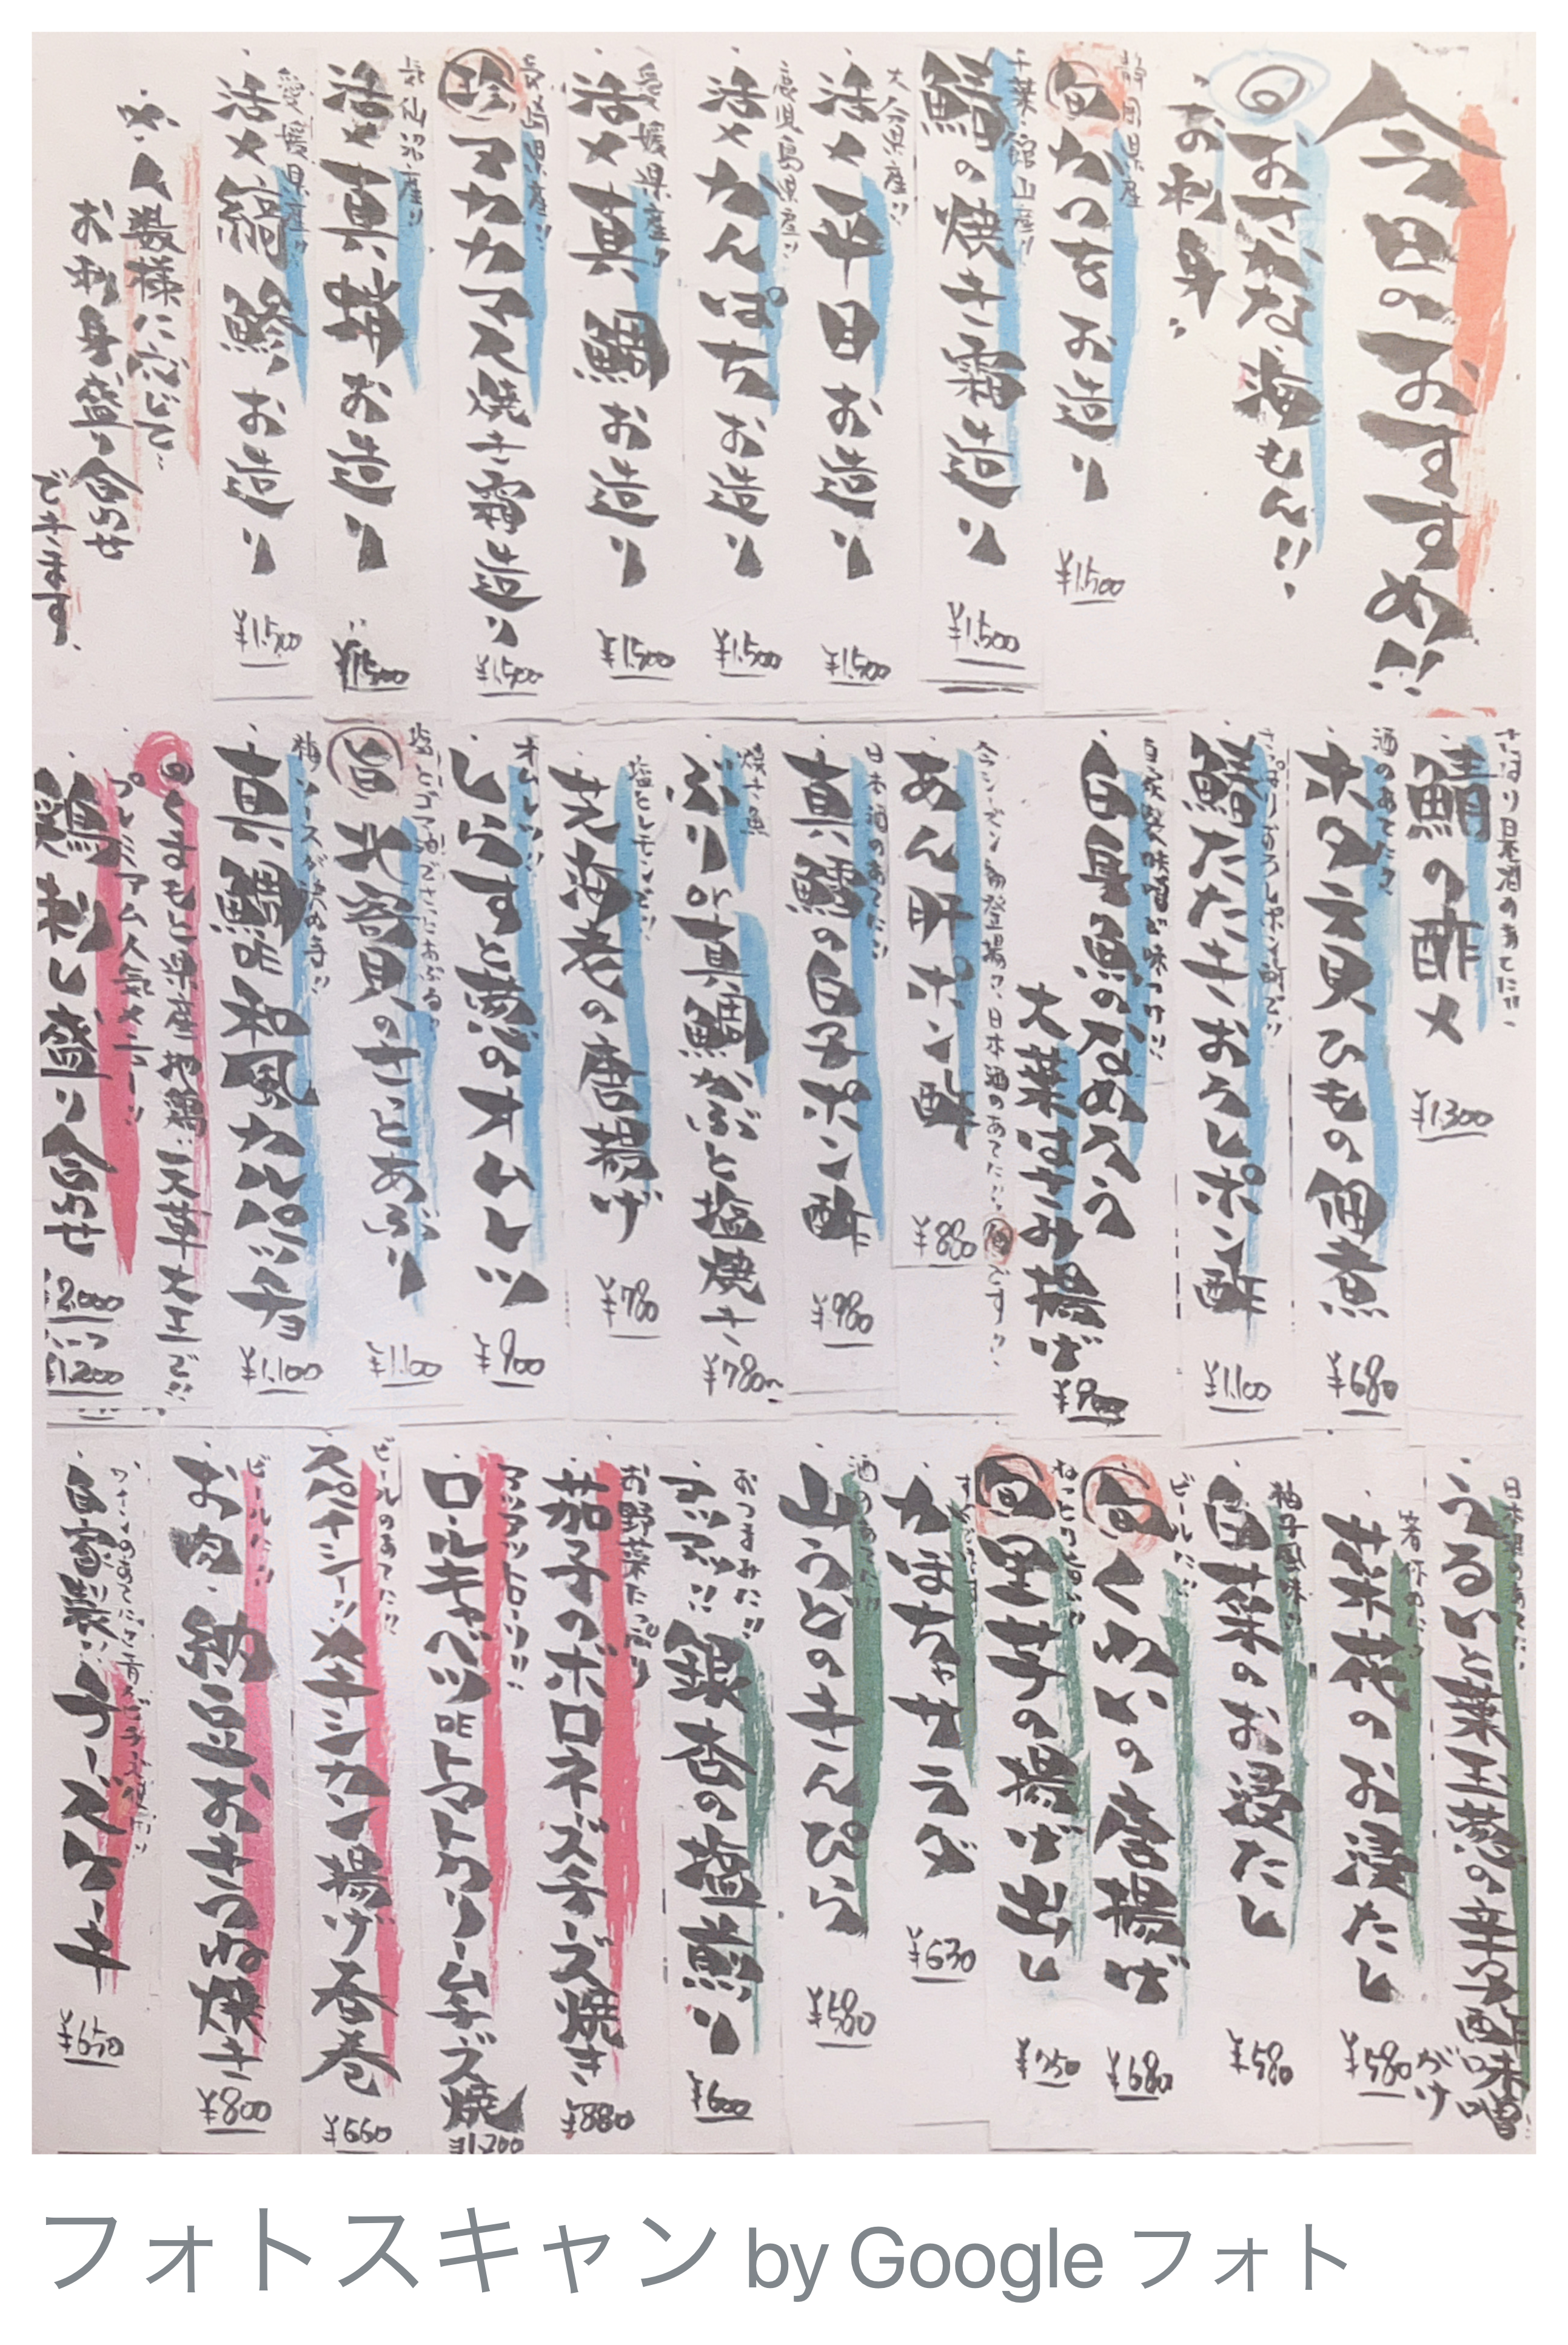 今日のおすすめ!!
旬おさかな・海もん!!
お刺身
静岡県産
旬かつをお造り ¥1,500
千葉館山産
鰆の焼き霜造り ¥1,500
大分県産!!
活〆平目お造り ¥1,500
鹿児島県産!!
活〆かんぱちお造り ¥1,500
愛媛県産!!
活〆真鯛お造り ¥1,500
県産!!
珍アカカマス焼き霜造り ¥1,500
気仙沼産!!
活〆真お造り ¥1,500
愛媛県産!!
活〆縞鯵お造り ¥1,500
人数様に応じて…
お刺身盛り合わせ
できます。
日本酒のあてに!!
鯖の酢〆 ¥1,300
酒のあてに
ホタテ貝ひもの佃煮 ¥680
さっぱりおろしポン酢で!!
鰆たたきおろしポン酢 ¥1,100
味噌が味つけ!!
白身魚のなめろう
大葉はさみ揚げ ¥900
今シーズン初登場!!日本酒のあてに…旬です!!
あん肝ポン酢 ¥880
日本酒のあてに!!
真鱈の白子ポン酢 ¥980
焼き魚
ぶりor真鯛かぶと塩焼き ¥780〜
塩とレモンで!!
芝海老の唐揚げ ¥780
オムレツ!!
しらすと葱のオムレツ ¥900
塩とゴマ油でさっとあぶる
旨北寄貝のさっとあぶり ¥1,100
梅ソースが決め手!!
真鯛和風カルパッチョ ¥1,100
くまもと県産地鶏“天草大王”で!!
プレミアム人気メニュー!!
鶏刺し盛り合わせ ¥2,000
ハーフ¥1,200
日本酒のあてに
うるい・葉玉葱の辛子酢味噌がけ
箸休めに
菜花のお浸たし ¥580
柚子風味!!
白菜のお浸たし ¥580
ビールに!!
旬くわいの唐揚げ ¥680
旬里芋の揚げ出し ¥750
かぼちゃサラダ ¥630
酒のあてに!!
山うどのきんぴら ¥580
おつまみに!!
アツアツ!!銀杏の塩煎り ¥600
お野菜たっぷり
茄子のボロネーズチーズ焼き ¥880
アツアツトローリ!!
ロールキャベツDEトマトクリームチーズ焼 ¥1,200
ビールのあてに!!
スパイシー!!メキシカン揚げ春巻 ¥660
ビールに!!
お肉・納豆おきつね焼き ¥800
自家製!!チーズケーキ ¥650
フォトスキャン by Google フォト